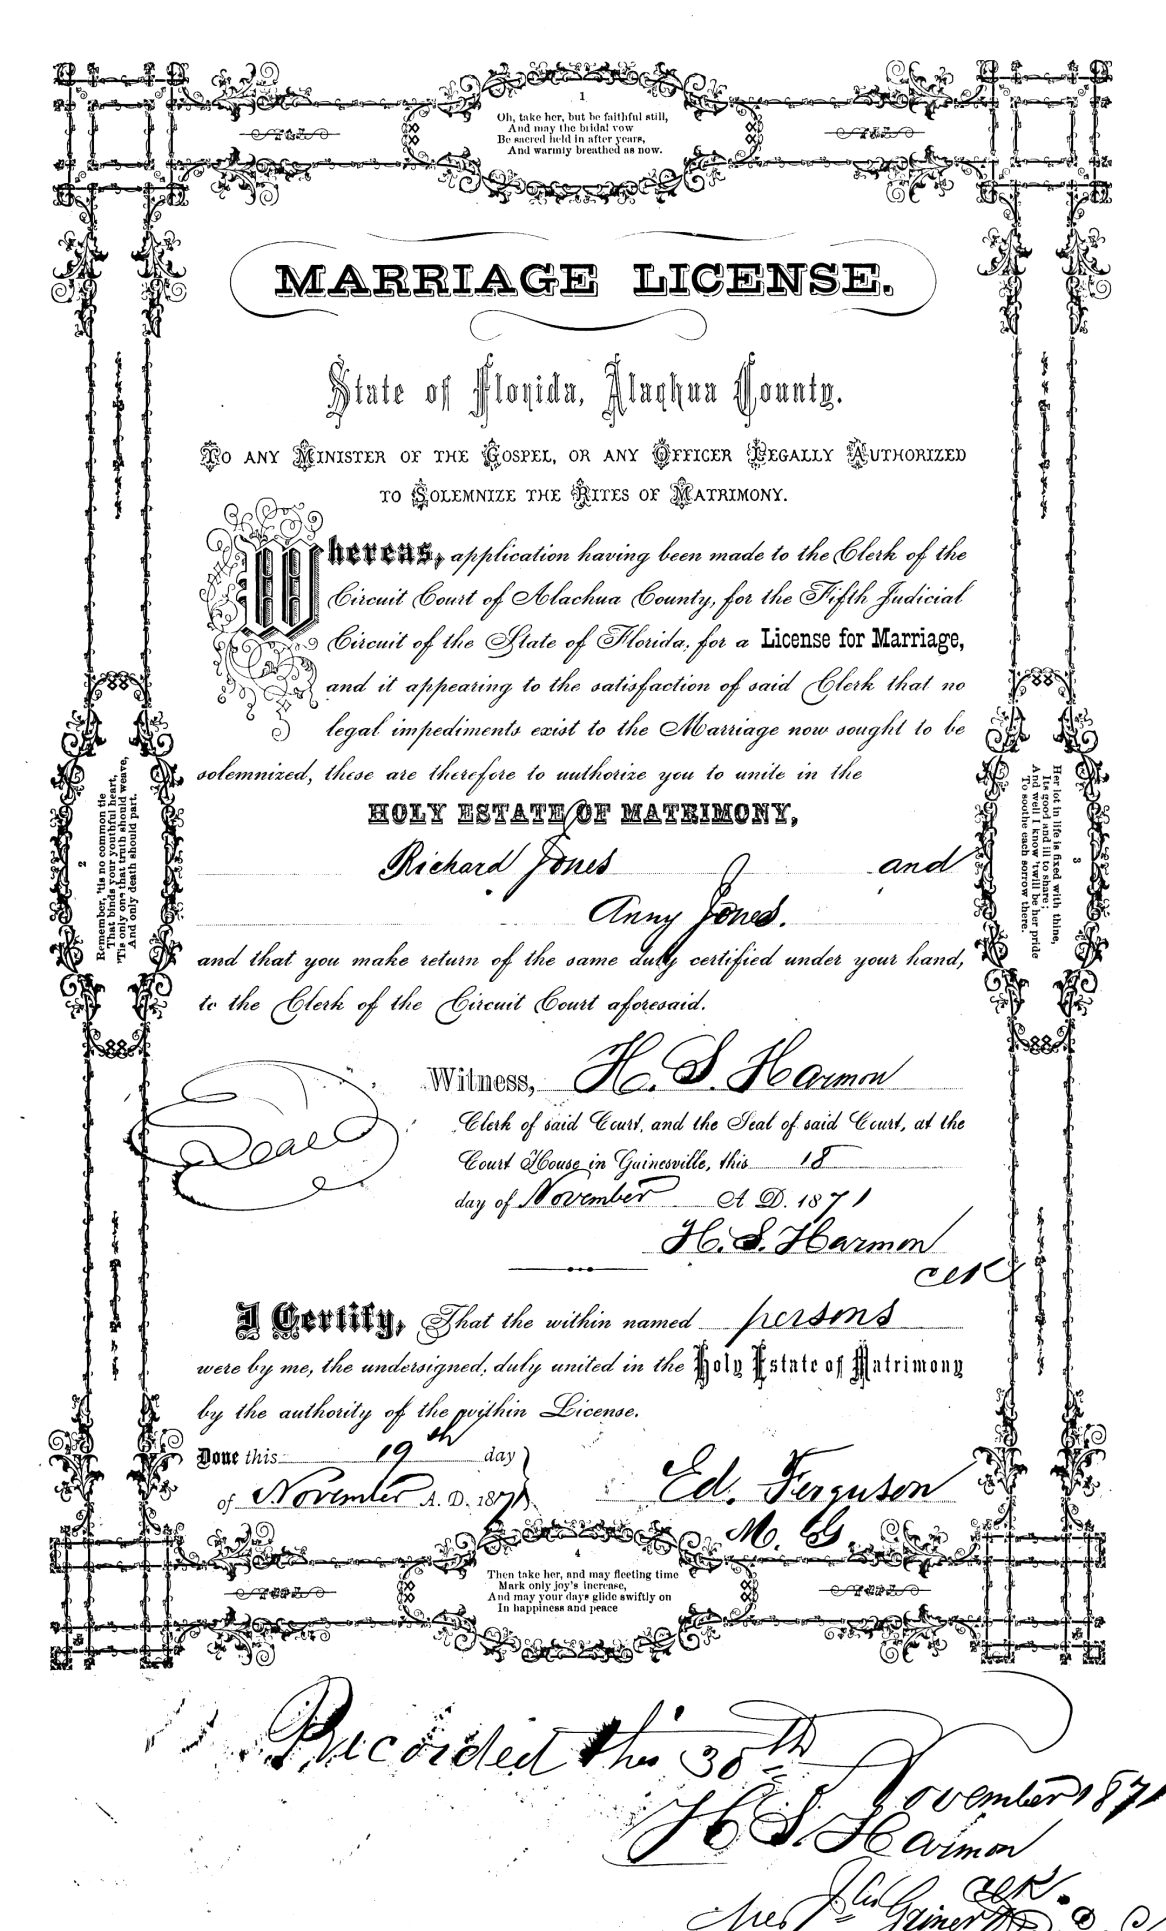 1
Oh, take her, but be faithful still,
And may the bridal vow
Be sacred held in after years,
And warmly breathed as now.
MARRIAGE LICENSE.
State of Florida, Alachua County.
TO ANY MINISTER OF THE GOSPEL, OR ANY OFFICER LEGALLY AUTHORIZED
TO SOLEMNIZE THE RITES OF MATRIMONY.
Whereas, application having been made to the Clerk of the
Circuit Court of Alachua County, for the Fifth Judicial
Circuit of the State of Florida, for a License for Marriage,
and it appearing to the satisfaction of said Clerk that no
legal impediments exist to the Marriage now sought to be
solemnized, these are therefore to authorize you to unite in the
HOLY ESTATE OF MATRIMONY,
Richard Jones and
Anny Jones.
and that you make return of the same duly certified under your hand,
to the Clerk of the Circuit Court aforesaid.
2
Remember, 'tis no common tie
That binds your youthful heart,
'Tis only one that truth should weave,
And only death should part.
3
Her lot in life is fixed with thine,
Its good and ill to share;
And well I know 'twill be her pride
To soothe each sorrow there.
Witness, H. S. Harmon
Clerk of said Court, and the Seal of said Court, at the
Court House in Gainesville, this 18
day of November A. D. 1871
Seal
H. S. Harmon
Clk
I Certify, That the within named persons
were by me, the undersigned, duly united in the Holy Estate of Matrimony
by the authority of the within License.
Done this 19th day
of November A. D. 1871
Ed. Ferguson
M. G
4
Then take her, and may fleeting time
Mark only joy's increase,
And may your days glide swiftly on
In happiness and peace
Recorded this 30th November 1871
H. S. Harmon
Clk.